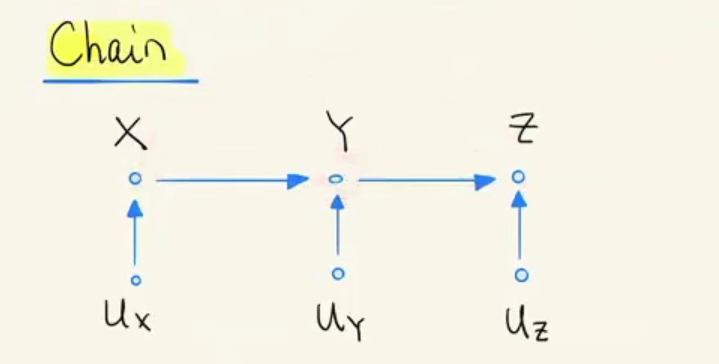 Chain
X Y Z
Ux Uy Uz